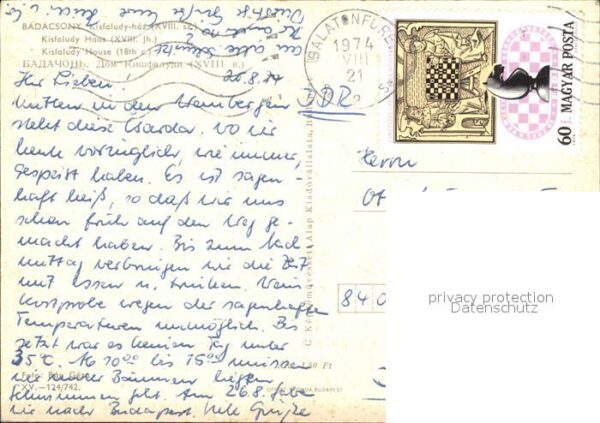 BADACSONY Kisfaludy-ház (XVIII. sz.)
Kisfaludy Haus (XVIII. Jh.)
Kisfaludy House (18th c.)
БАДАЧОНЬ. Дом Кишфалуди (XVIII в.)
BALATONFÜRED
1974
VIII
21
60 f
MAGYAR POSTA
Ihr Lieben! 20.8.74
DDR
Mitten in den Weinbergen
steht diese Csarda, wo wir
heute vorzüglich, wie immer,
gespeist haben. Es ist sagen-
haft heiß, so daß wir uns
schon früh auf den Weg ge-
macht haben. Bis zum Nach-
mittag verbringen wir die Zeit
mit essen u. trinken. Wein-
kostprobe wegen der sagenhaften
Temperaturen unmöglich. Bis
jetzt war es keinen Tag unter
35°C. Ab 10 00 bis 15 00 müssen
wir unter Bäumen liegen,
Schwimmen geht. Am 26.8. fahren
wir nach Budapest. Viele Grüße
Herrn
840
Képzőművészeti Alap Kiadóvállalata
Foto:
XV.—124/742.
50 Ft
BUDAPEST
privacy protection
Datenschutz